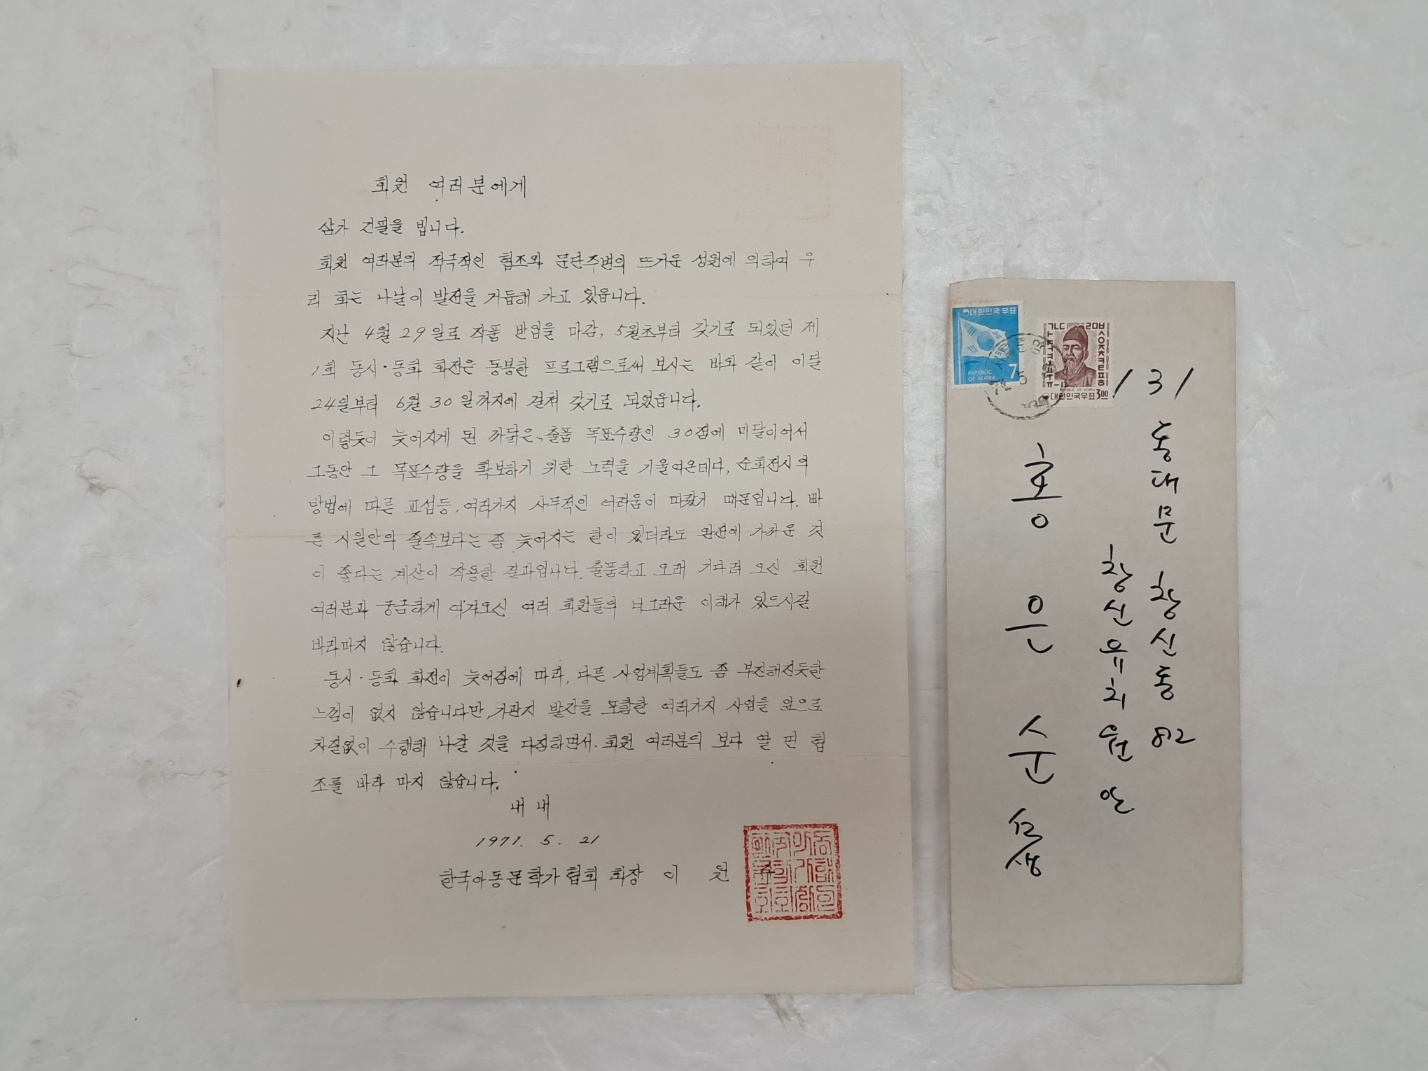 회원 여러분에게
삼가 건필을 빕니다.
회원 여러분의 적극적인 협조와 문단주변의 뜨거운 성원에 의하여 우
리 회는 나날이 발전을 거듭해 가고 있읍니다.
지난 4월 29일로 작품 반입을 마감, 5월초부터 갖기로 되었던 제
1회 동시·동화 화전은 동봉한 프로그램으로써 보시는 바와 같이 이달
24일부터 6월 30일까지에 걸쳐 갖기로 되었읍니다.
이렇듯이 늦어지게 된 까닭은, 출품 목표수량인 30점에 미달이어서
그동안 그 목표수량을 확보하기 위한 노력을 기울여온데다, 순회전시의
방법에 따른 교섭등, 여러가지 사무적인 어려움이 따랐기 때문입니다. 빠
른 시일안의 졸속보다는 좀 늦어지는 한이 있더라도 완전에 가까운 것
이 좋다는 계산이 작용한 결과입니다. 출품하고 오래 기다려 오신 회원
여러분과 궁금하게 여겨오신 여러 회원들의 너그러운 이해가 있으시길
바라마지 않습니다.
동시·동화 화전이 늦어짐에 따라, 다른 사업계획들도 좀 부진해진듯한
느낌이 없지 않습니다만, 기관지 발간을 포함한 여러가지 사업을 앞으로
차질없이 수행해 나갈 것을 다짐하면서, 회원 여러분의 보다 열 띤 협
조를 바라 마지 않습니다.
내내
1971. 5. 21
한국아동문학가협회 회장 이 원 수
대한민국우표
7
REPUBLIC
OF KOREA
대한민국우표 3.00
131
동대문 창신동 82
창신유치원 안
홍 은 순 선생